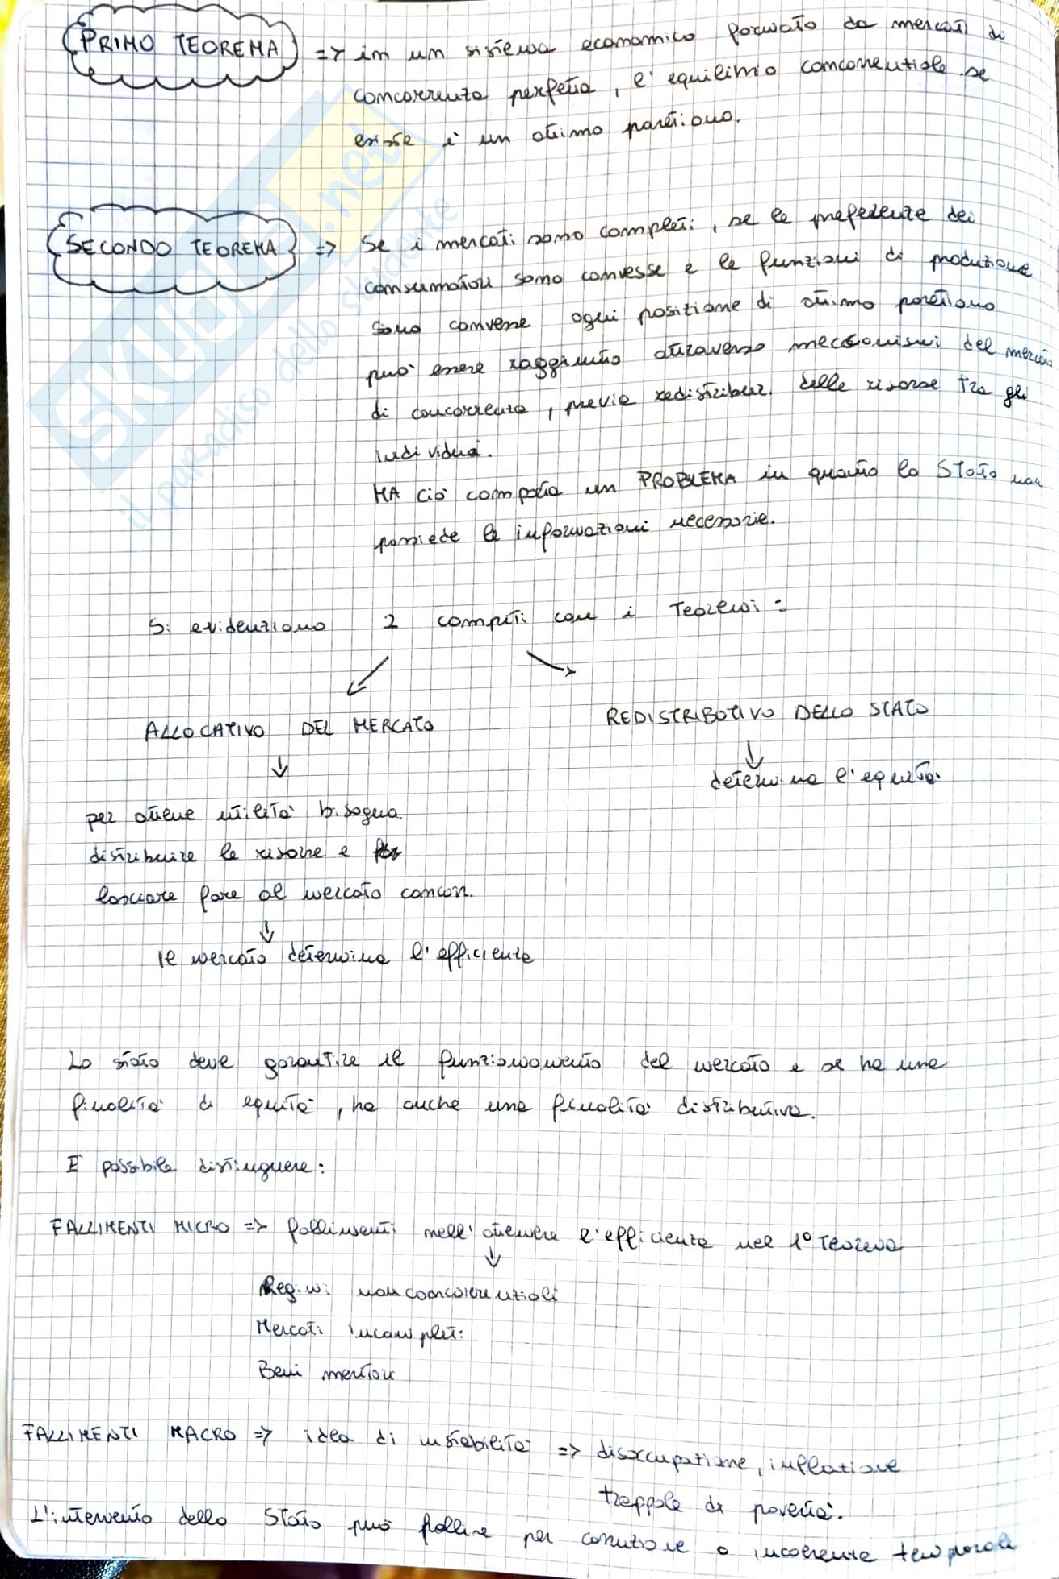 PRIMO TEOREMA => in un sistema economico formato da mercati di
concorrenza perfetta, l'equilibrio concorrenziale se
esiste è un ottimo paretiano.
SECONDO TEOREMA => Se i mercati sono completi, se le preferenze dei
consumatori sono convesse e le funzioni di produzione
sono convesse ogni posizione di ottimo paretiano
può essere raggiunto attraverso meccanismi del mercato
di concorrenza, previa redistribuz. delle risorse tra gli
individui.
MA ciò comporta un PROBLEMA in quanto lo Stato non
possiede le informazioni necessarie.
Si evidenziano 2 compiti con i Teoremi:
ALLOCATIVO DEL MERCATO
REDISTRIBUTIVO DELLO STATO
determina l'equità
per ottene utilità bisogna
distribuire le risorse e
lasciare fare al mercato concorr.
Il mercato determina l'efficienza
Lo stato deve garantire il funzionamento del mercato e se ha una
finalità di equità, ha anche una finalità distributiva.
E possibile distinguere:
FALLIMENTI MICRO => fallimenti nell'ottenere l'efficienza nel 1° Teorema
Regimi non concorrenziali
Mercati incompleti
Beni meritori
FALLIMENTI MACRO => idea di instabilità => disoccupazione, inflazione
trappole di povertà.
L'intervento dello Stato può fallire per corruzione o incoerenza temporale
SKUOLA.net
il paradiso dello studente